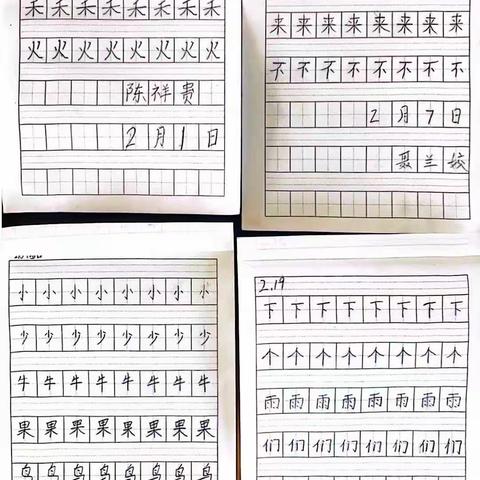 禾禾禾禾禾禾禾禾
火火火火火火火火
陈祥贵
2月1日
来来来来来来来来
不不不不不不不不
2月7日
聂兰姣
小小小小小小小小
少少少少少少少少
牛牛牛牛牛牛牛牛
果果果果果果果果
鸟鸟鸟鸟鸟鸟鸟鸟
2.19
下下下下下下下下
个个个个个个个个
雨雨雨雨雨雨雨雨
们们们们们们们们